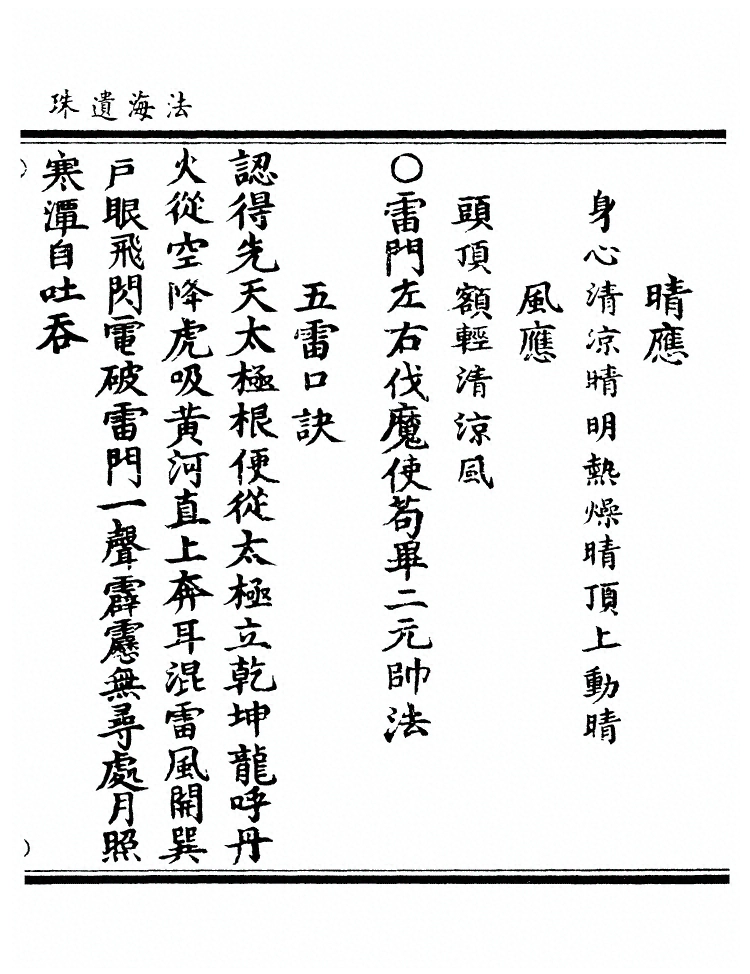 法海遺珠
晴應
身心清凉晴明熱燥晴頂上動晴
風應
頭頂額輕清涼風
○雷門左右伐魔使苟畢二元帥法
五雷口訣
認得先天太極根便從太極立乾坤龍呼丹
火從空降虎吸黄河直上奔耳混雷風開巽
戶眼飛閃電破雷門一聲霹靂無尋處月照
寒潭自吐吞